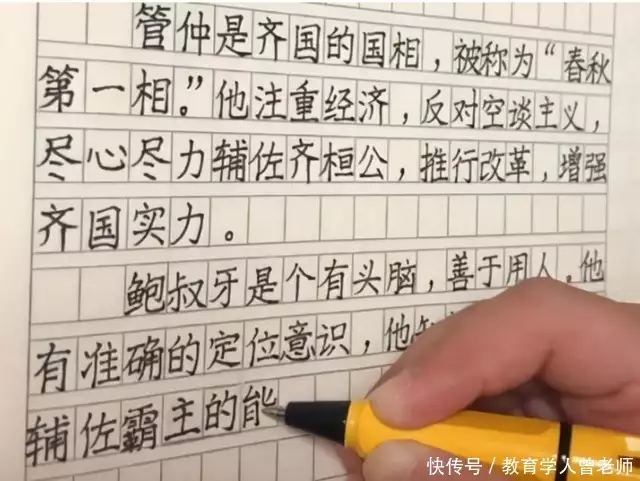 管仲是齐国的国相，被称为“春秋
第一相。”他注重经济，反对空谈主义，
尽心尽力辅佐齐桓公，推行改革，增强
齐国实力。
鲍叔牙是个有头脑，善于用人。他
有准确的定位意识，他
辅佐霸主的能
快传号／教育学人曾老师